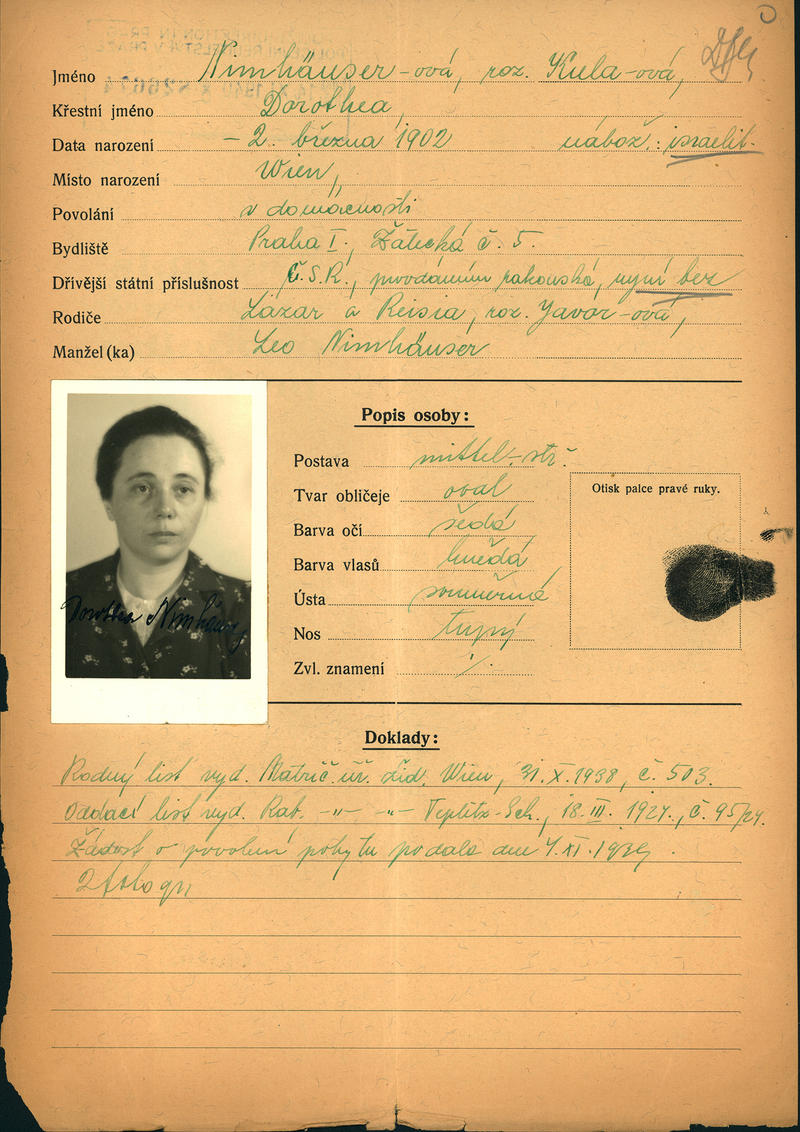 Jméno Nimhäuser-ová, roz. Kula-ová,
Křestní jméno Dorothea,
Data narození – 2. března 1902 nábož.: israelit.
Místo narození Wien,
Povolání v domácnosti
Bydliště Praha I., Žatecká č. 5.
Dřívější státní příslušnost Č.S.R., původním rakouská, nyní bez
Rodiče Lazar a Reisia, roz. Yavor-ová,
Manžel (ka) Leo Nimhäuser
Popis osoby:
Postava mittel-stř.
Tvar obličeje oval
Barva očí šedá
Barva vlasů hnědá
Ústa souměrná
Nos tupý
Zvl. znamení ./.
Otisk palce pravé ruky.
Dorothea Nimhäuser
Doklady:
Rodný list vyd. Matrič. úř. žid. Wien, 31.X.1938, č. 503.
Oddací list vyd. Rab. -"- -"- Teplitz-Sch., 18.III. 1924., č. 95/24.
Žádost o povolení pobytu podala dne 4.XI.1939.
2 fotogr